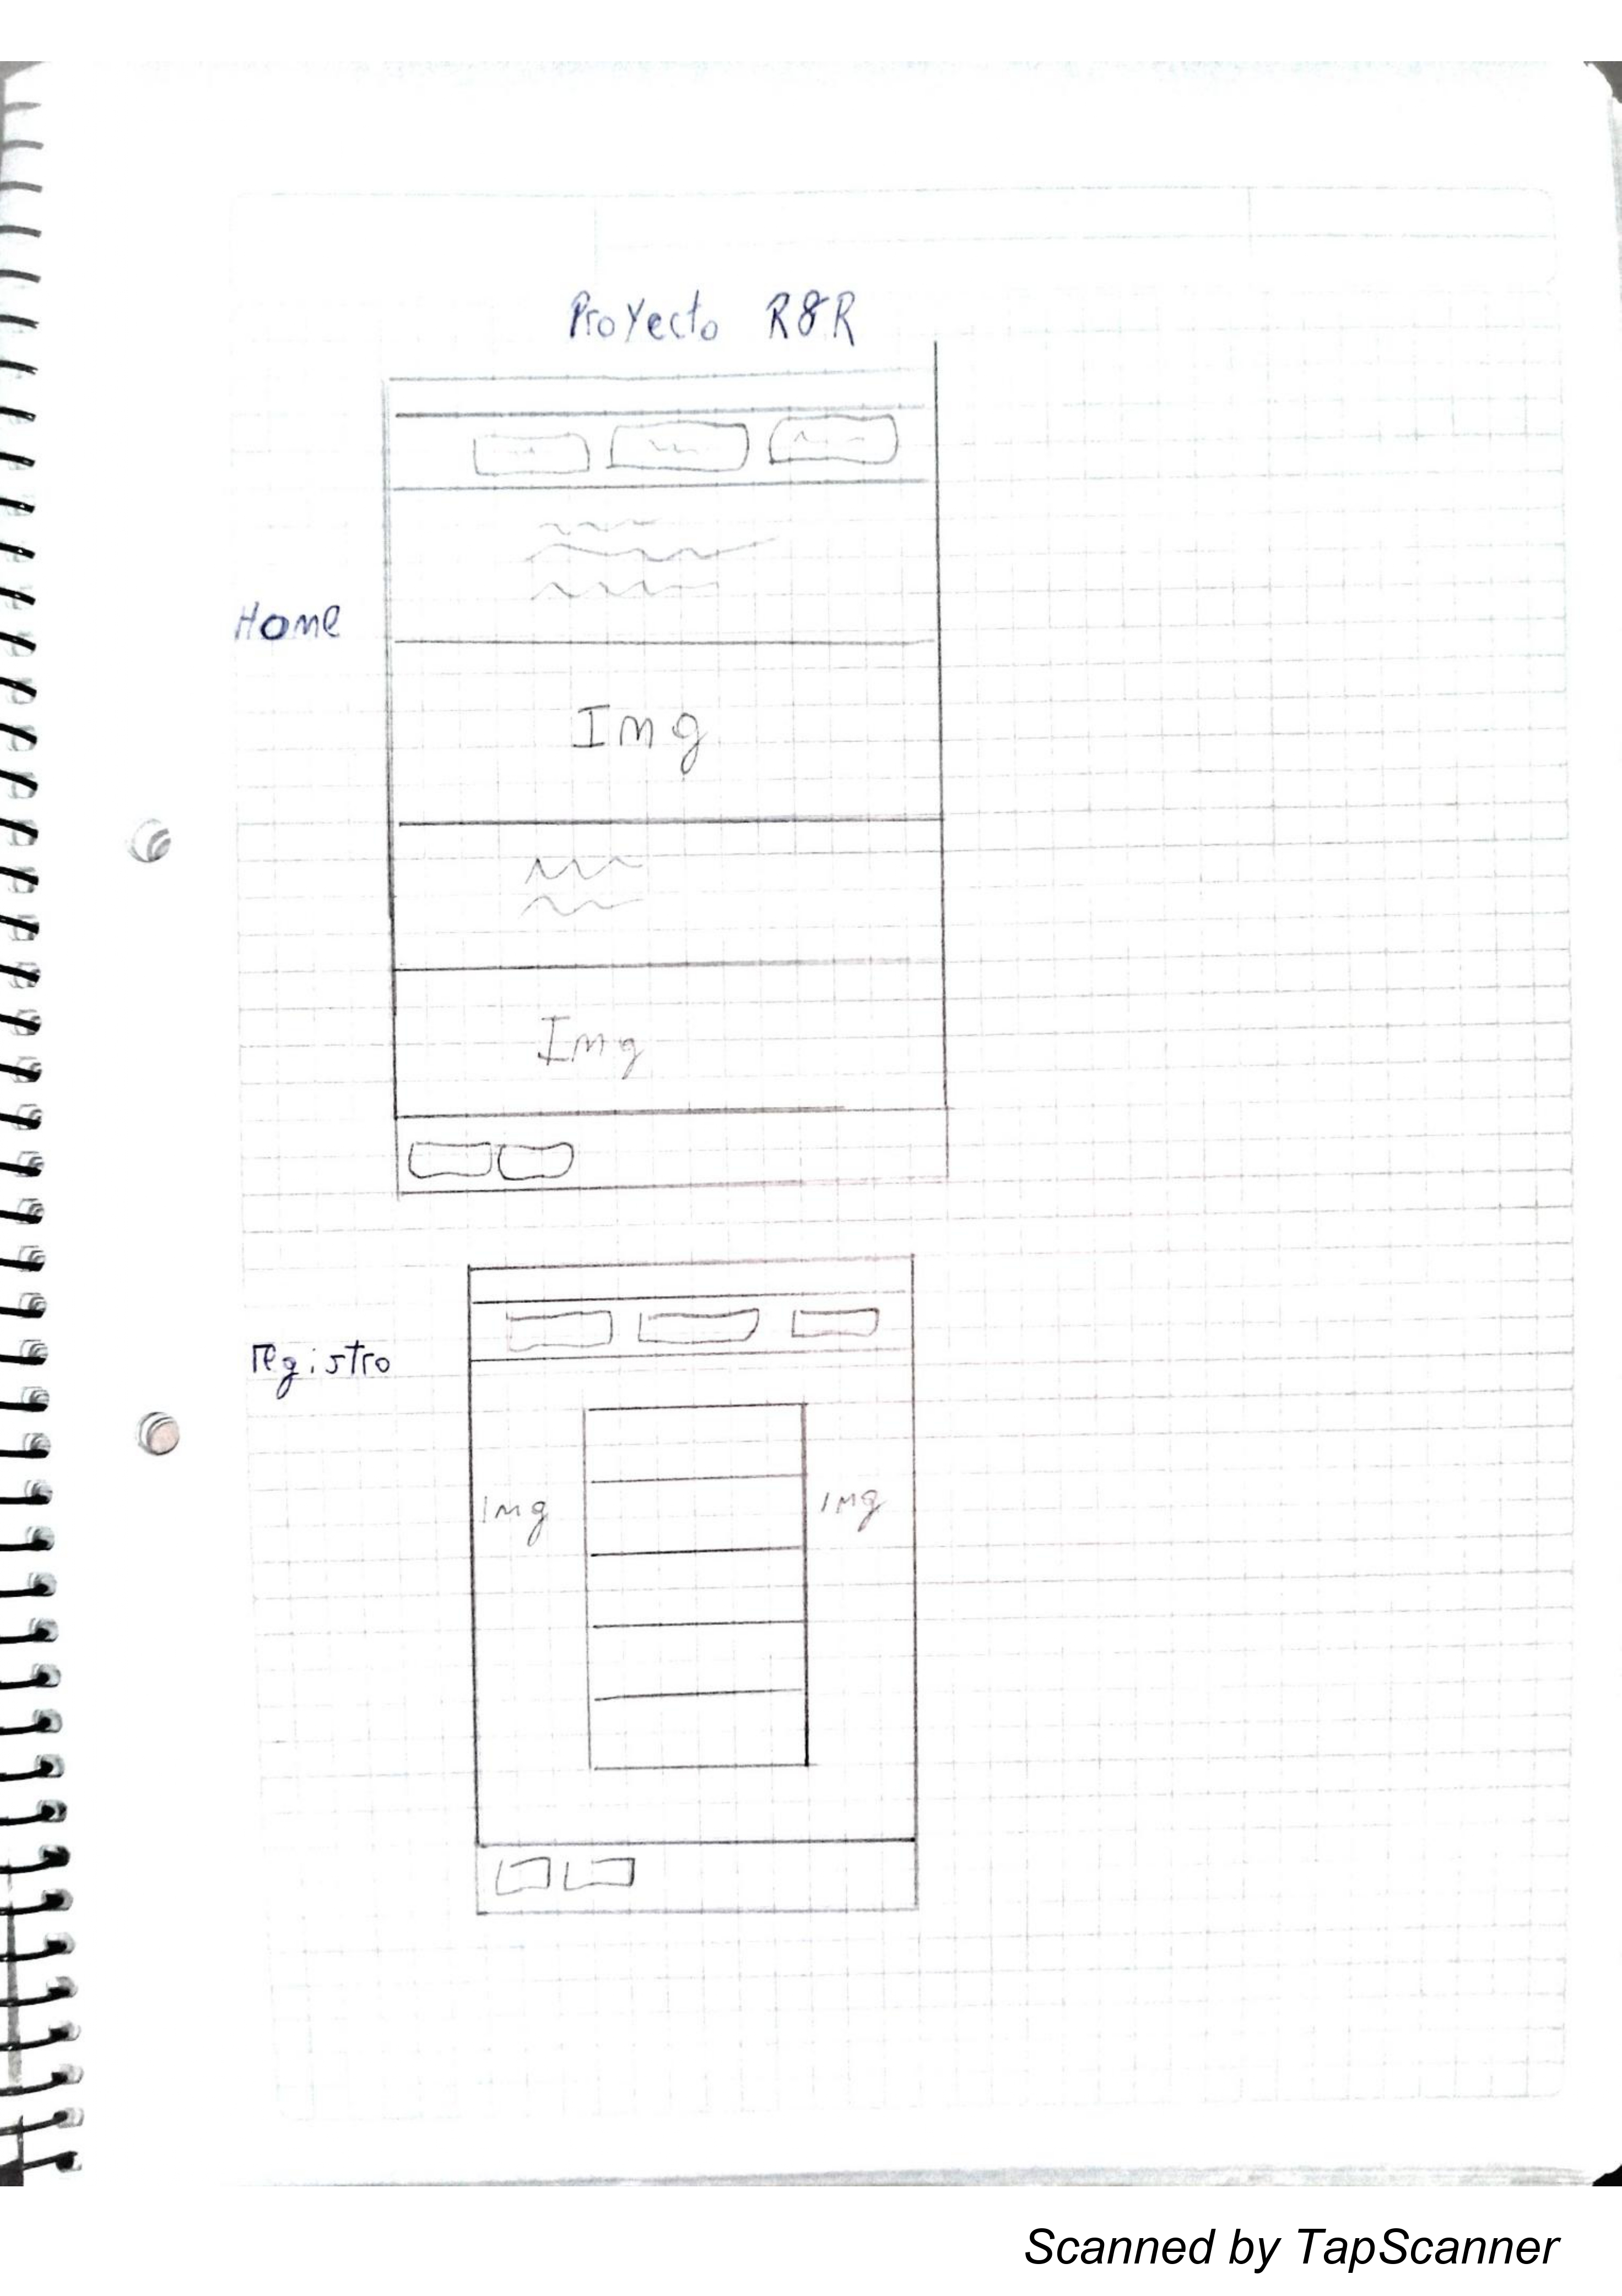 Proyecto R&R
Home
Img
Img
registro
Img
Img
Scanned by TapScanner